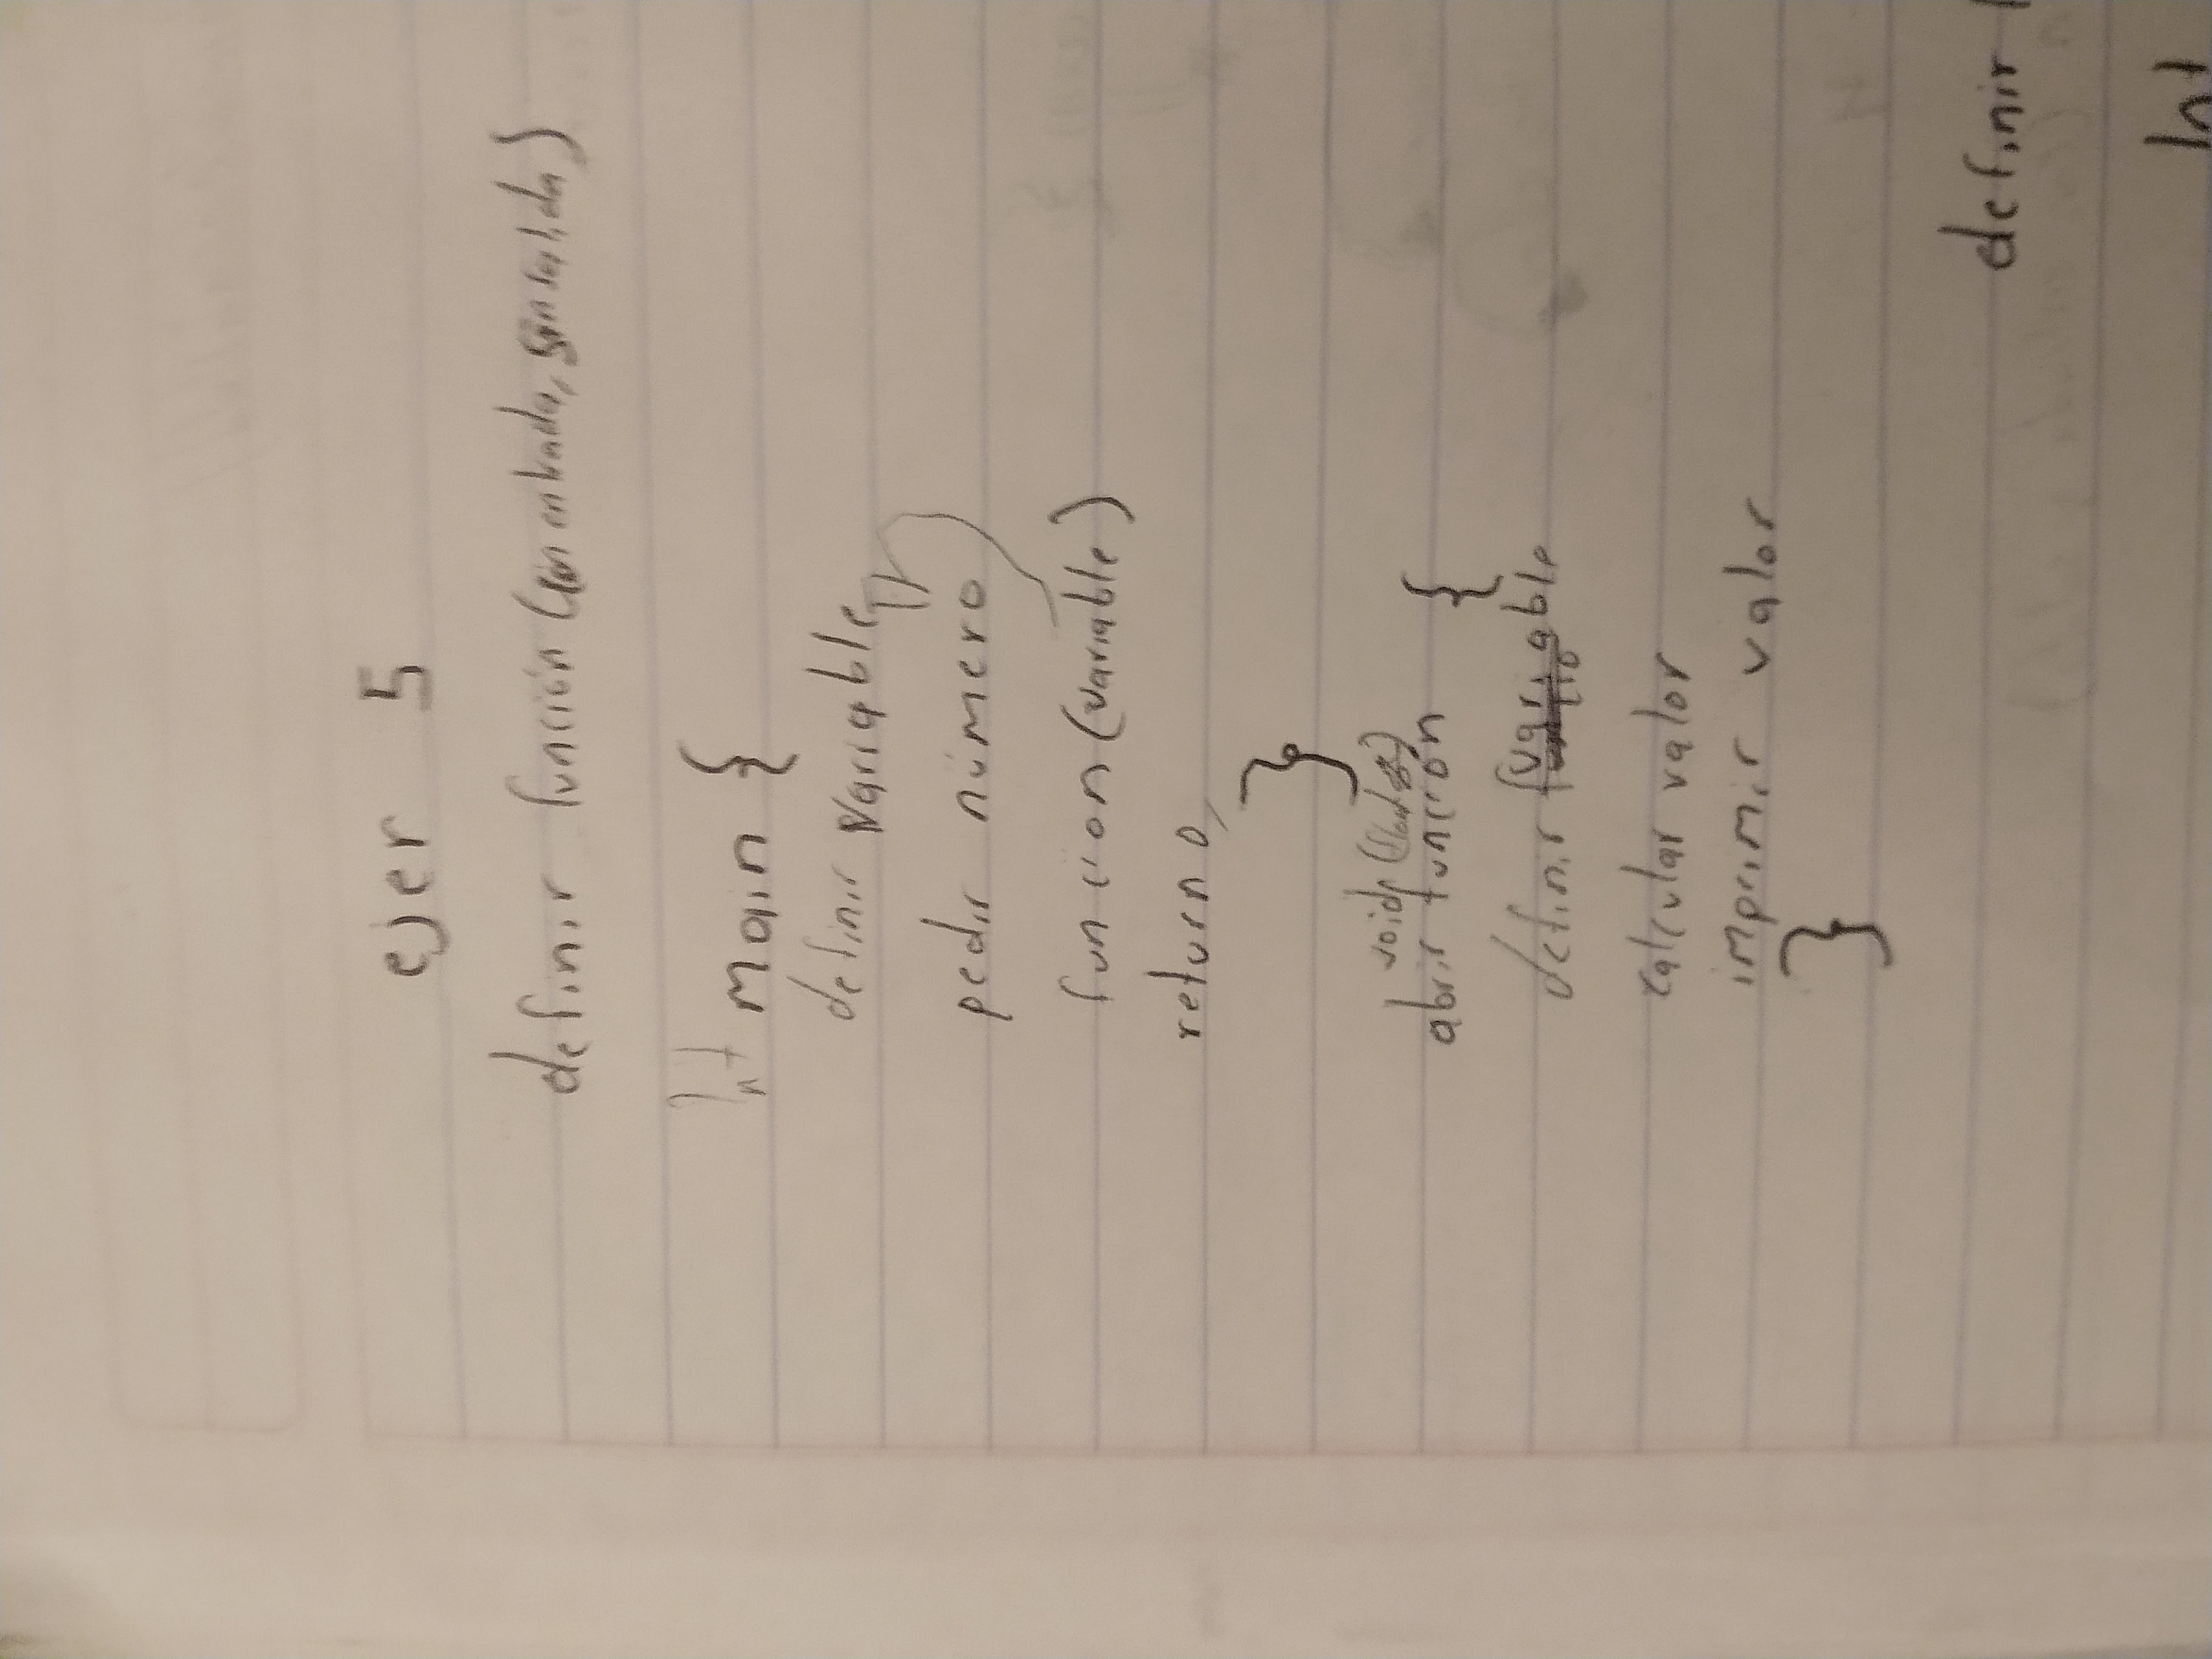 ejer 5
definir función (con entrada, sin salida)
Int main {
definir variable
pedir número
funcion (variable)
return 0,
}
void (float
abrir función {
definir variable
calcular valor
imprimir valor
}
definir
Int